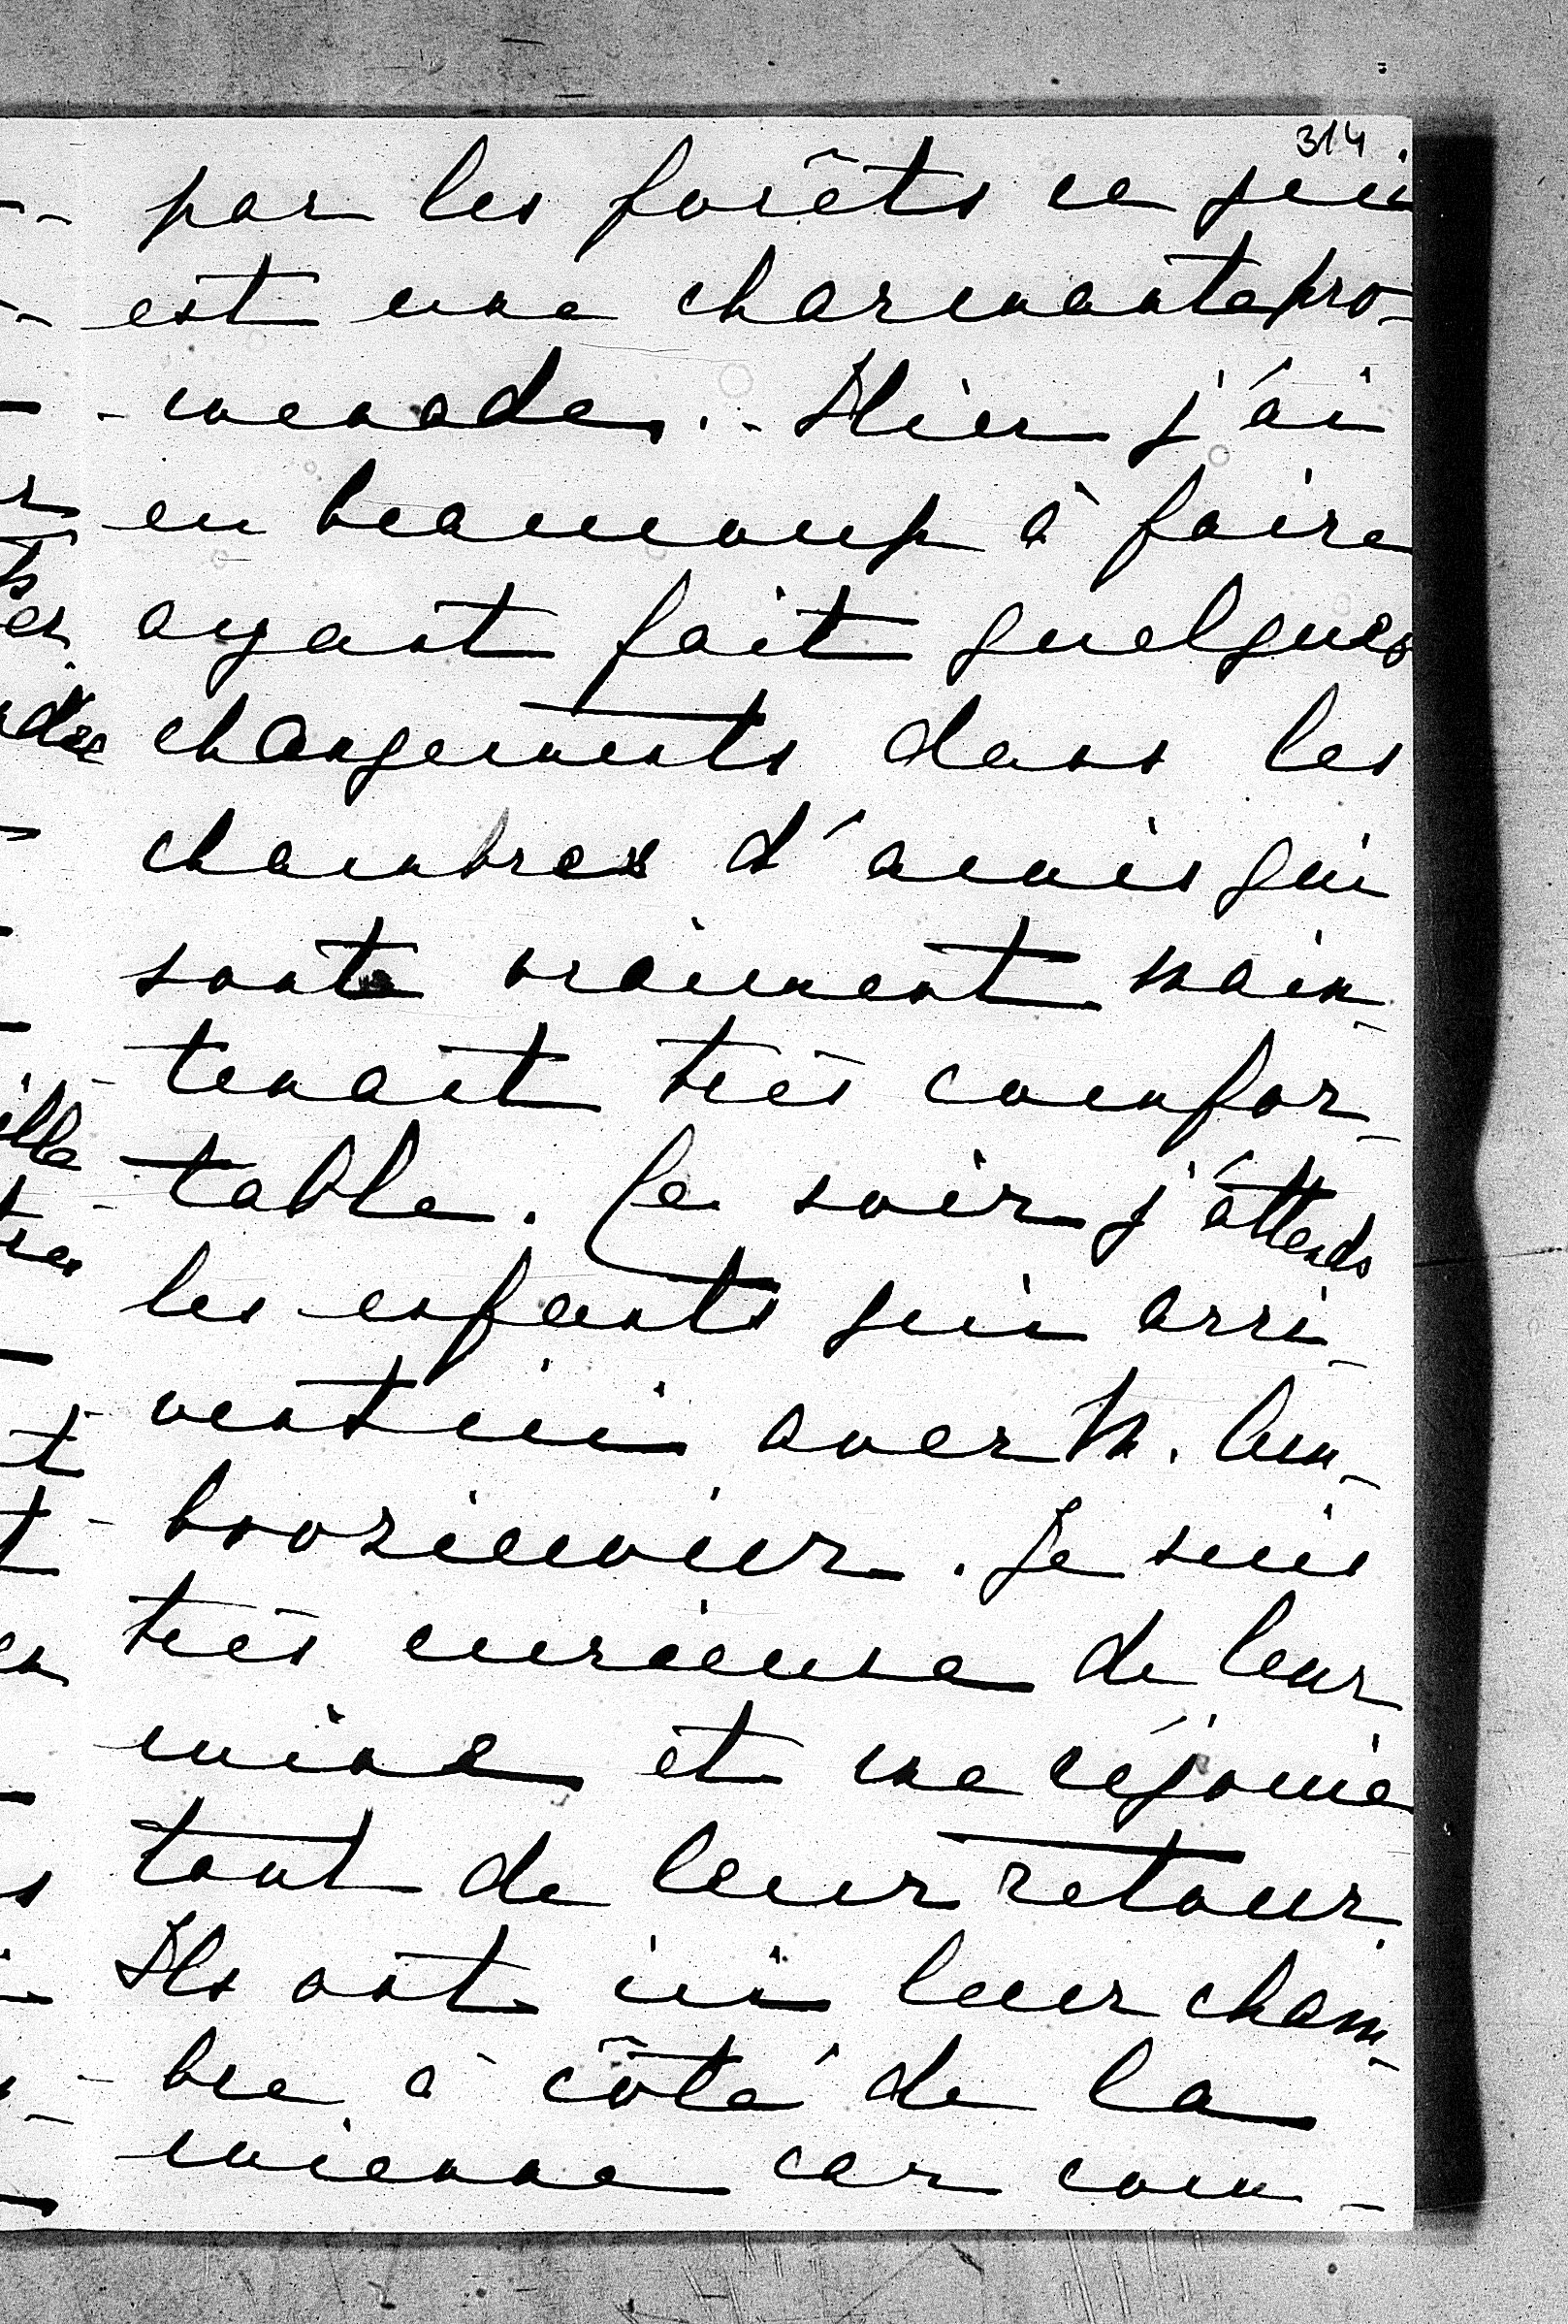 314
par les forêts ce qui
est une charmante pro-
-menade. - Hier j'ai
eu beaucoup à faire
ayant fait quelques
changements dans les
chambres d'amis qui
sont vraiment main-
-tenant très comfor-
-table. Ce soir j'attends
les enfants qui arri-
vent ici avec M.
Je suis
très curieuse de leur
mine et me réjouie
tout de leur retour.
Ils ont ici leur cham-
-bre à côté de la
mienne car com-